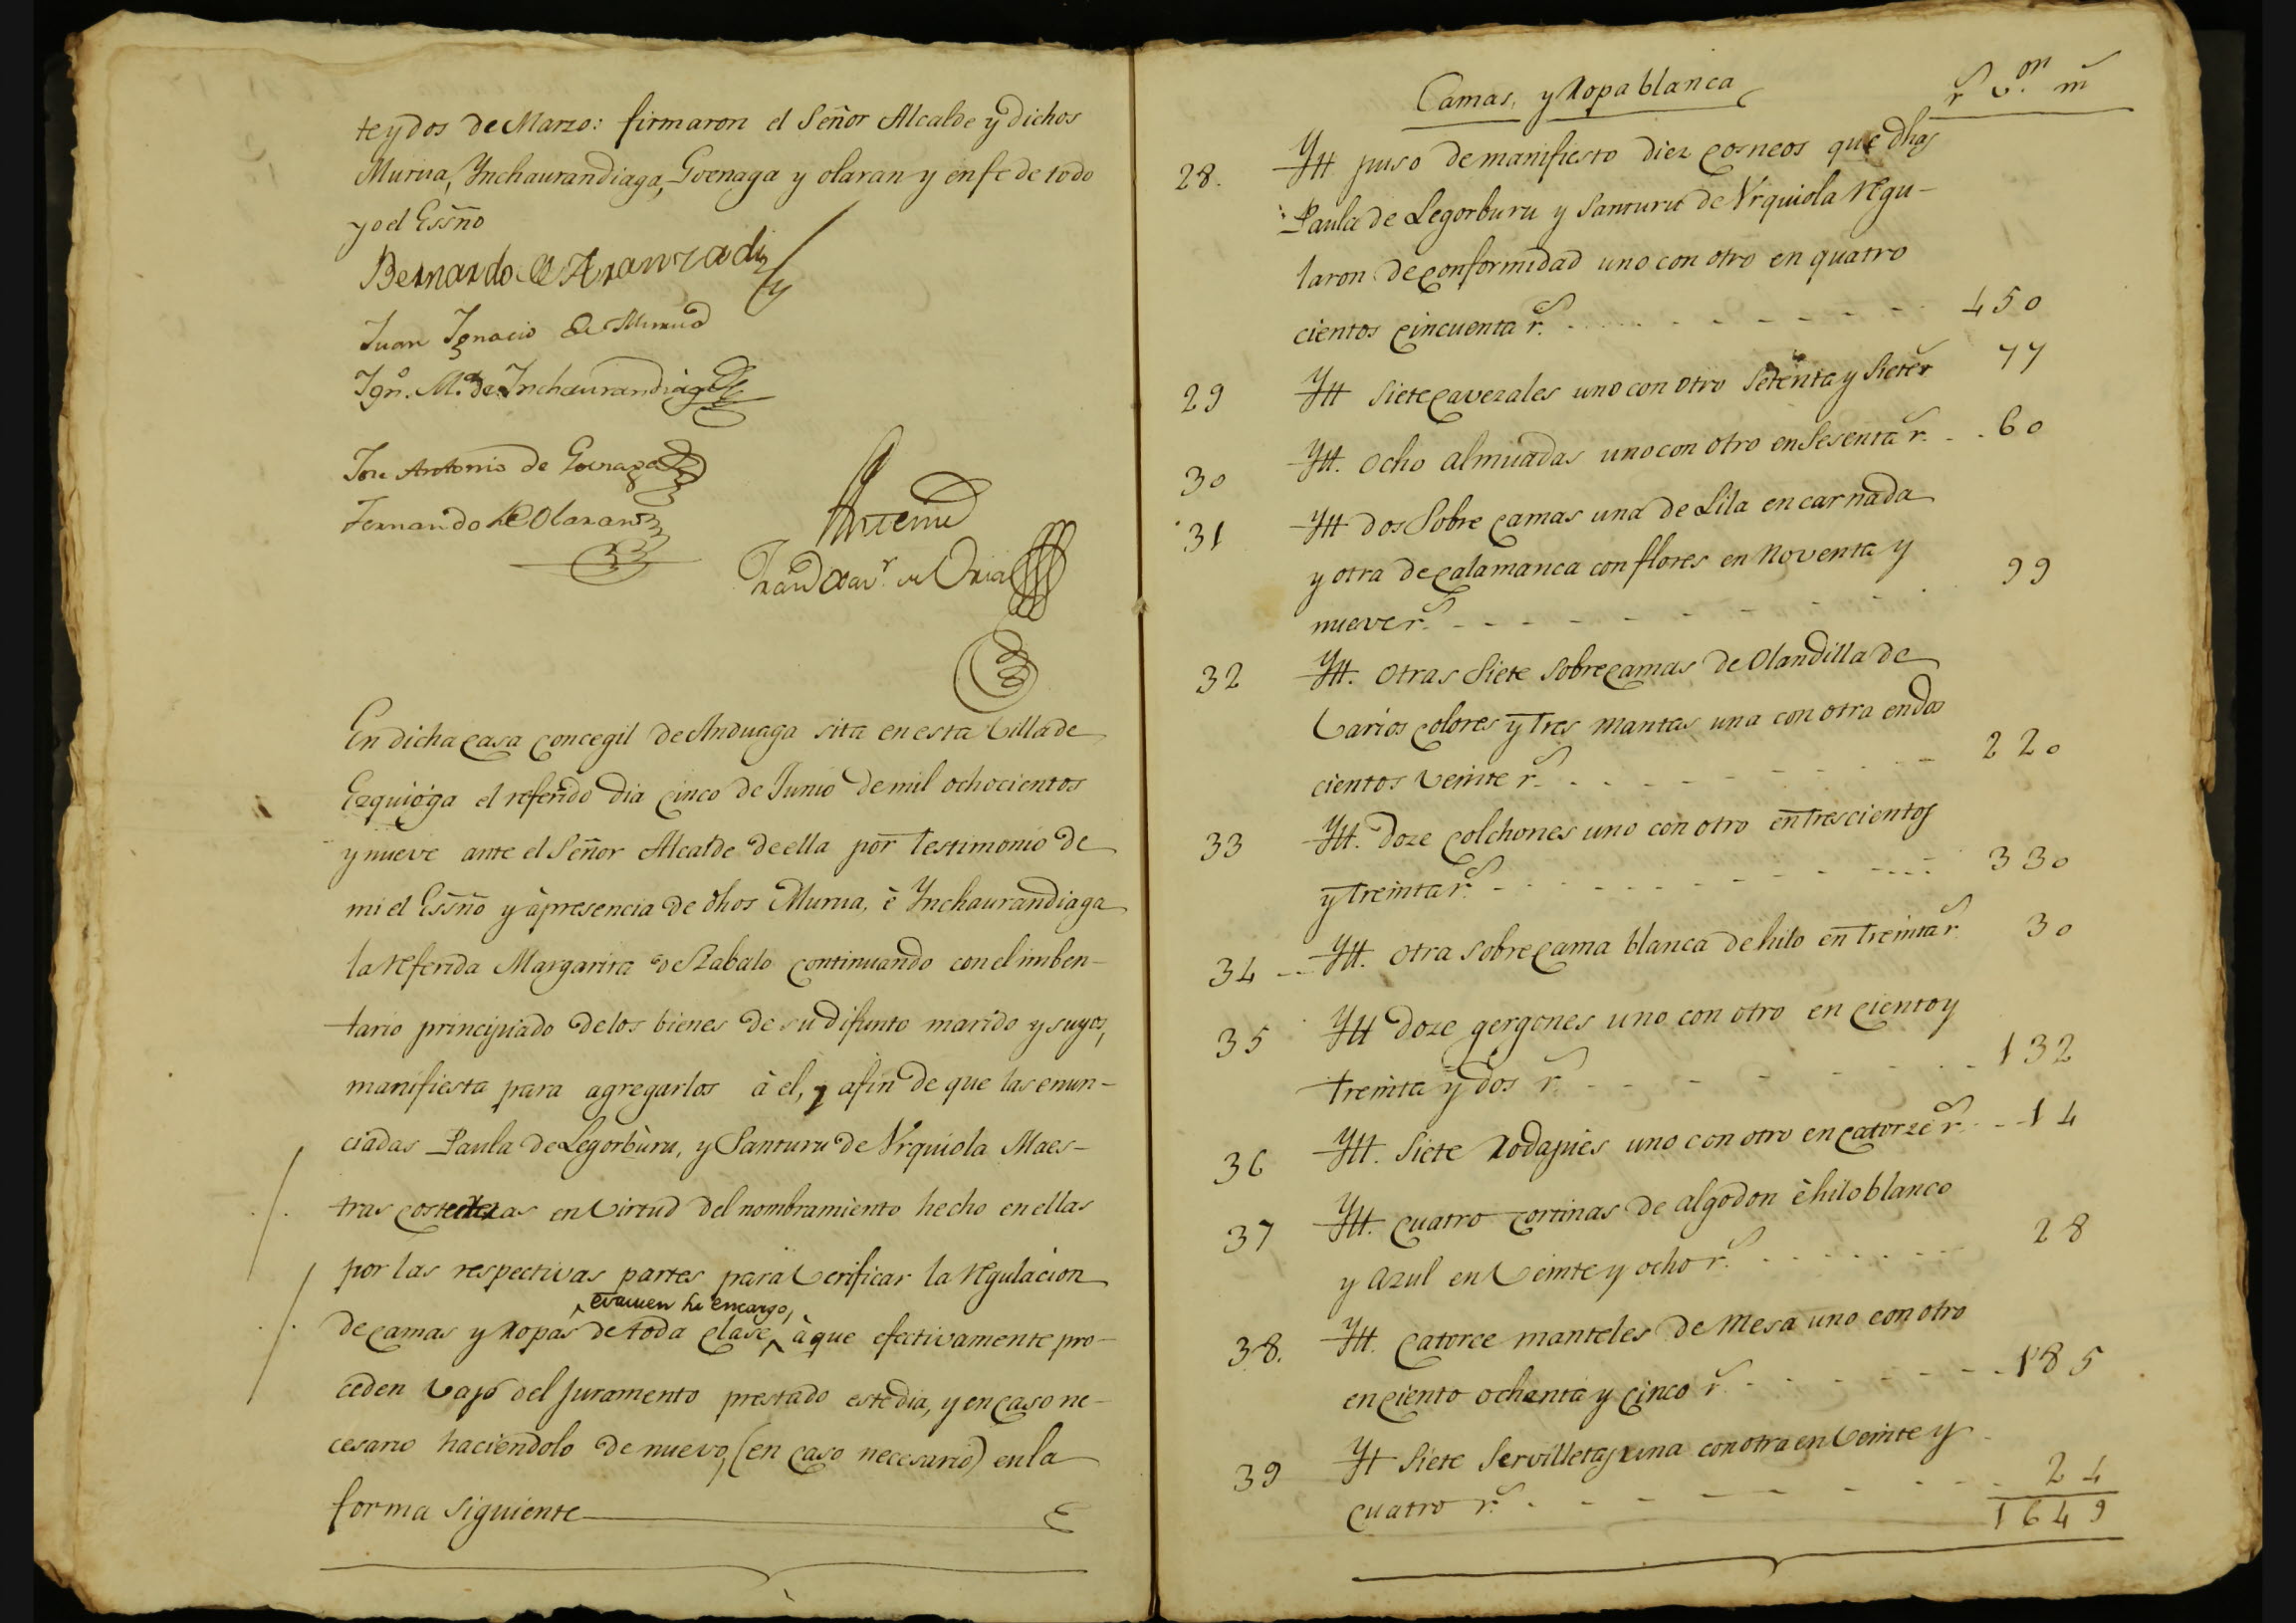 te y dos de Marzo: firmaron el Señor Alcalde y dichos
Murua, Ynchaurandiaga, Goenaga y olaran y en fe de todo
yo el Essño
Bernardo de Aranzadi
Juan Ignacio de Murua
Ign.º M.ª de Inchaurandiaga
Jose Antonio de Goenaga
Fernando de Olaran
Antemi
Fran.co Xav.r de Oria
En dicha casa concegil de Anduaga sita en esta Villa de
Ezquioga el referido dia cinco de Junio de mil ochocientos
y nueve ante el Señor Alcalde de ella por testimonio de
mi el Essño y à presencia de dhos Murua, è Ynchaurandiaga
la referida Margarita de Zabalo continuando con el imben-
tario principiado de los bienes de su difunto marido y suyos,
manifiesta para agregarlos à el, y afin de que las enun-
ciadas Paula de Legorbùru, y Santuru de Vrquiola Maes-
tras costureras en Virtud del nombramiento hecho en ellas
por las respectivas partes para Verificar la regulacion
evacuen su encargo,
de camas y Ropas de toda clase, à que efectivamente pro-
ceden vajo del Juramento prestado este dia, y en caso ne-
cesario haciendolo de nuevo, (en caso necesario) en la
forma siguiente
Camas, y Ropa blanca
r.s v.on m.s
28. Ytt puso de manifiesto diez cosneos que dhas
Paula de Legorburu y Santuru de Vrquiola regu-
laron de conformidad uno con otro en quatro
cientos cincuenta r.s 450
29 Ytt siete cavezales uno con otro setenta y siete r.s 77
30 Ytt. ocho almuadas uno con otro en sesenta r.s 60
31 Ytt dos sobre camas una de Lila encarnada
y otra de calamanca con flores en noventa y
nueve r.s 99
32 Ytt. otras siete sobrecamas de Olandilla de
varios colores y tres mantas una con otra en dos
cientos veinte r.s 220
33 Ytt. doze colchones uno con otro en trescientos
y treinta r.s 330
34 Ytt. otra sobrecama blanca de hilo en treinta r.s 30
35 Ytt doze gergones uno con otro en ciento y
treinta y dos r.s 132
36 Ytt. siete Rodapies uno con otro en catorze r.s 14
37 Ytt. cuatro cortinas de algodon è hilo blanco
y azul en veinte y ocho r.s 28
38. Ytt. catorce manteles de mesa uno con otro
en ciento ochenta y cinco r.s 185
39 Yt siete servilletas una con otra en veinte y
cuatro r.s 24
1649